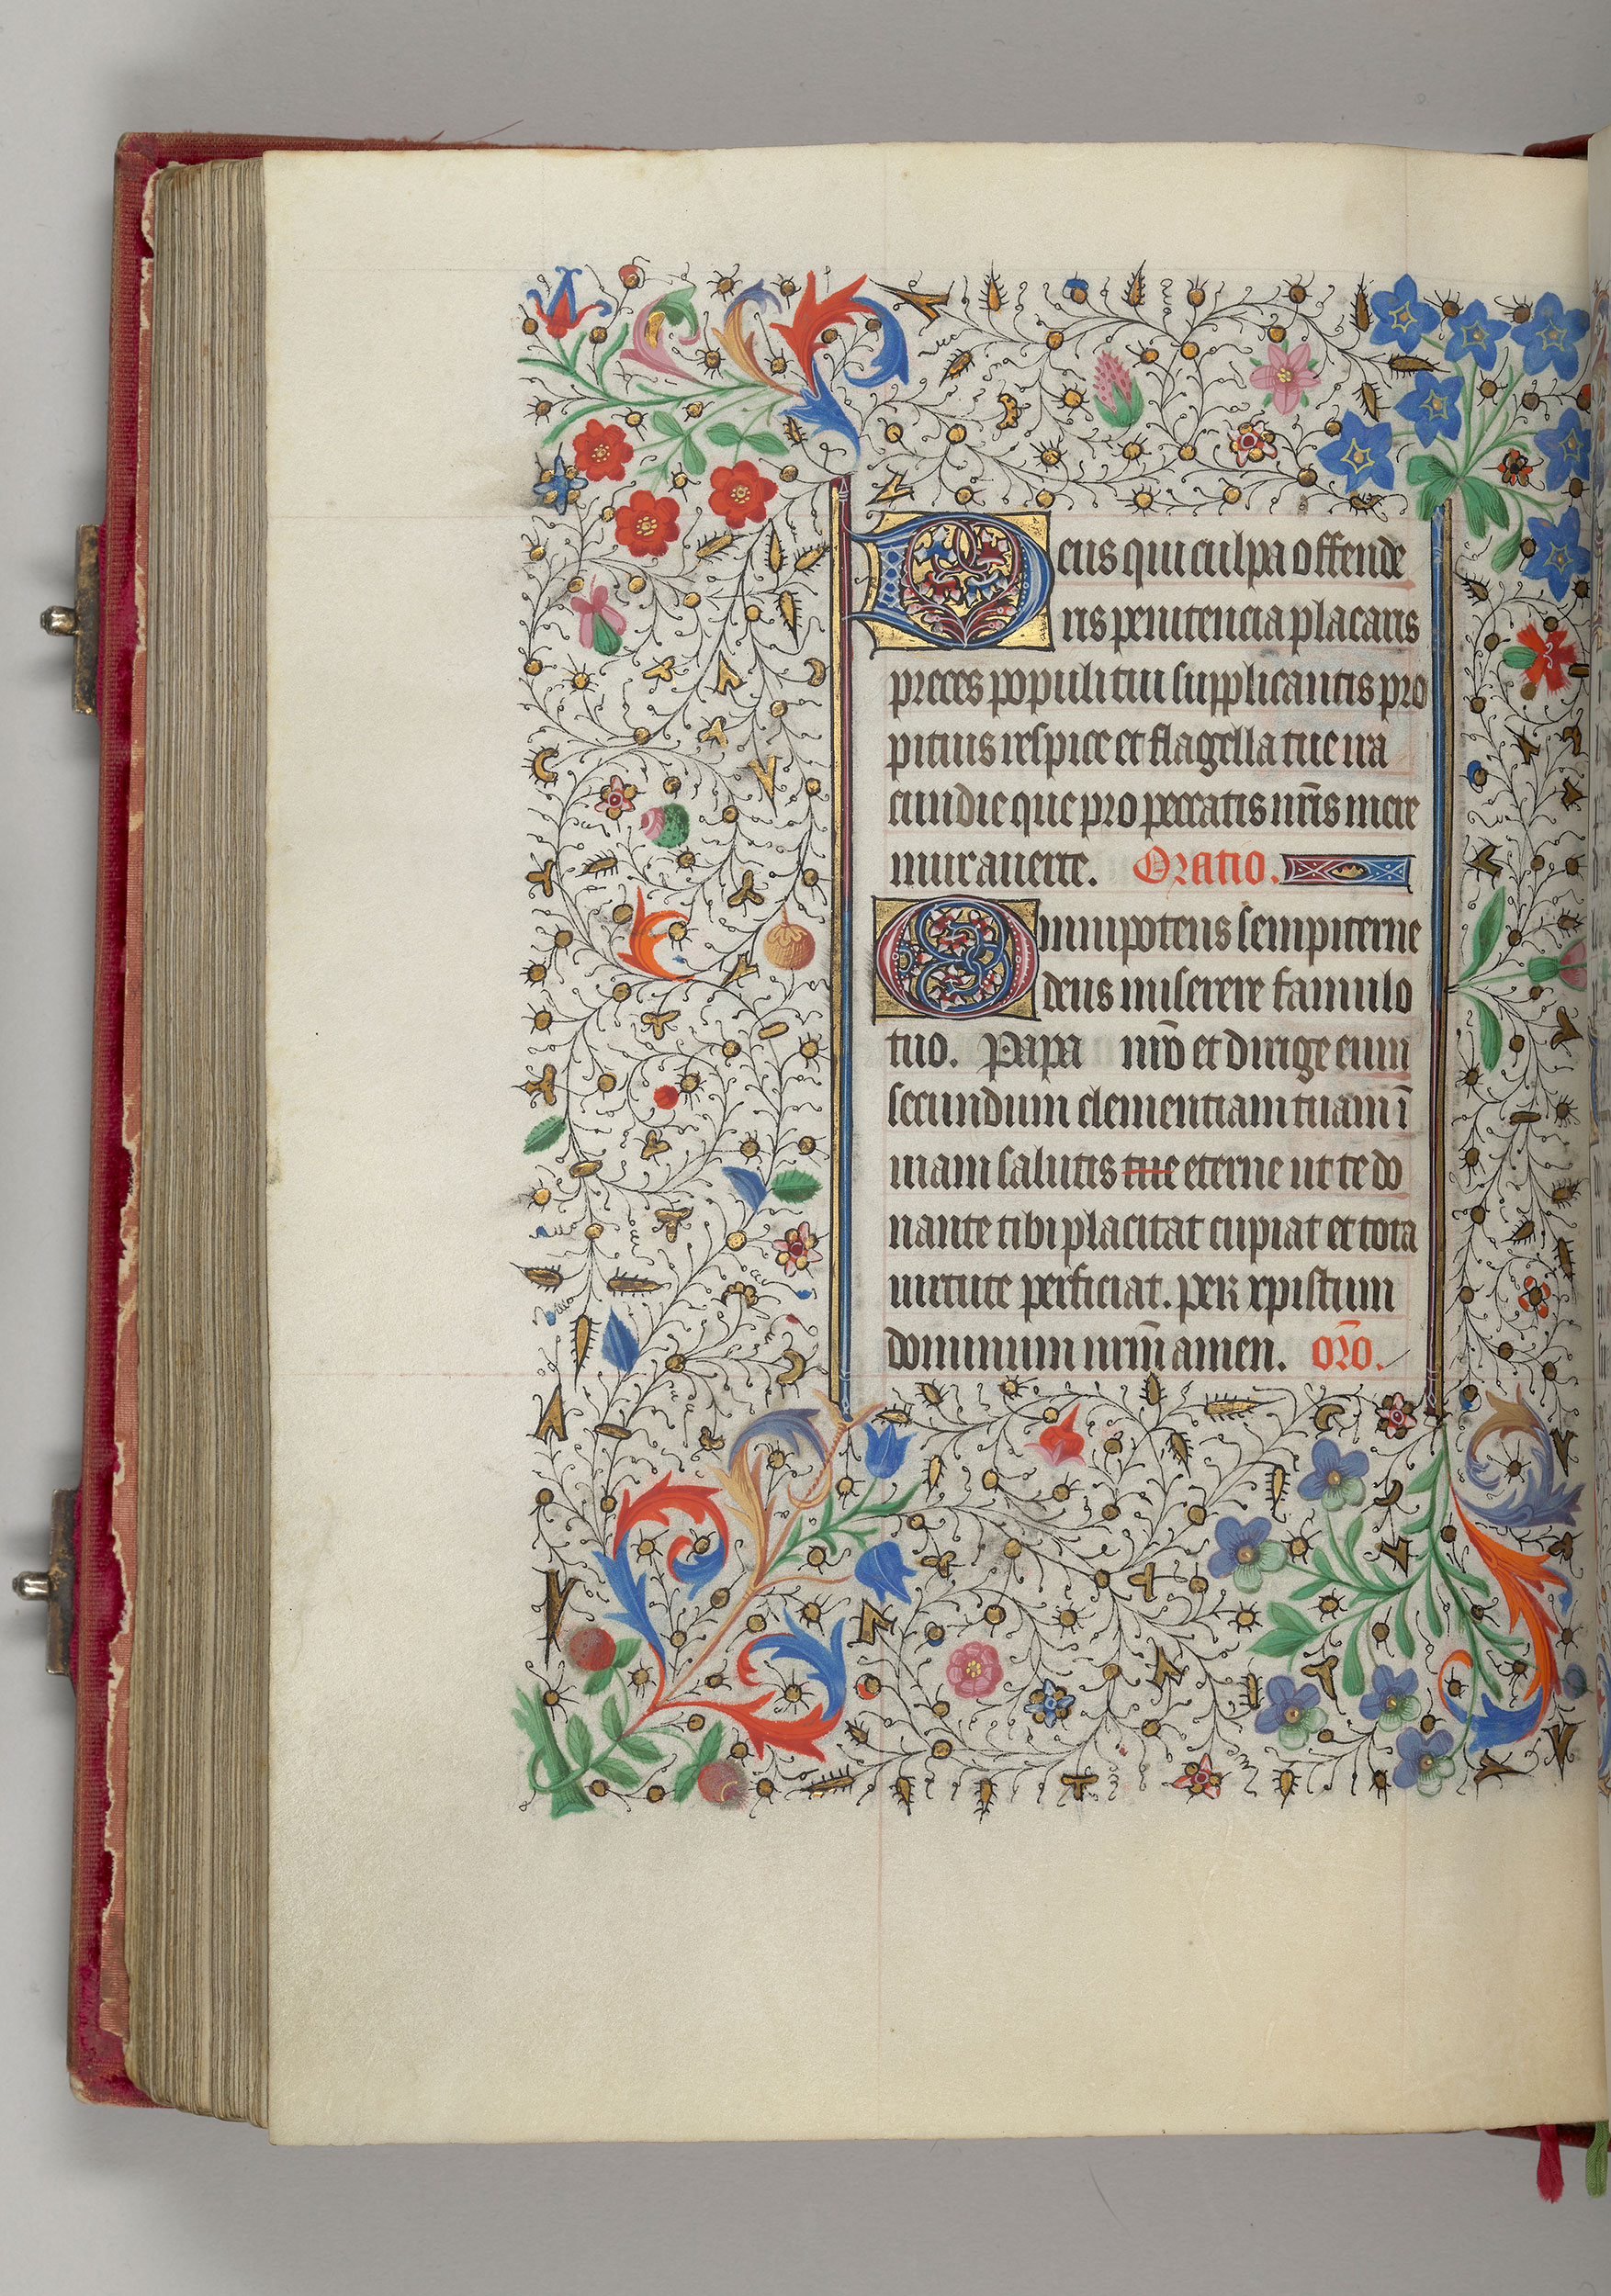 Deus qui culpa offende
ris penitencia placaris
preces populi tui supplicantis pro
pitius respice et flagella tue ira
cundie que pro peccatis nr̄is mere
mur auerte. Oratio.
Omnipotens sempiterne
deus miserere famulo
tuo. Papa nr̄o et dirige eum
secundum clementiam tuam ī
uiam salutis tue eterne ut te do
nante tibi placitat cupiat et tota
uirtute perficiat. per xpistum
dominum nr̄m̄ amen. or̄o.